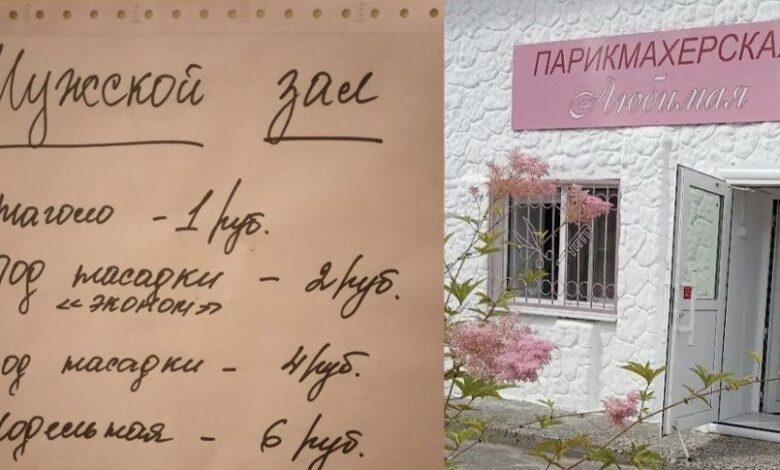 Мужской зал
Наголо - 1 руб.
Под насадки - 2 руб.
«эконом»
Под насадки - 4 руб.
Модельная - 6 руб.
ПАРИКМАХЕРСКАЯ
Любимая